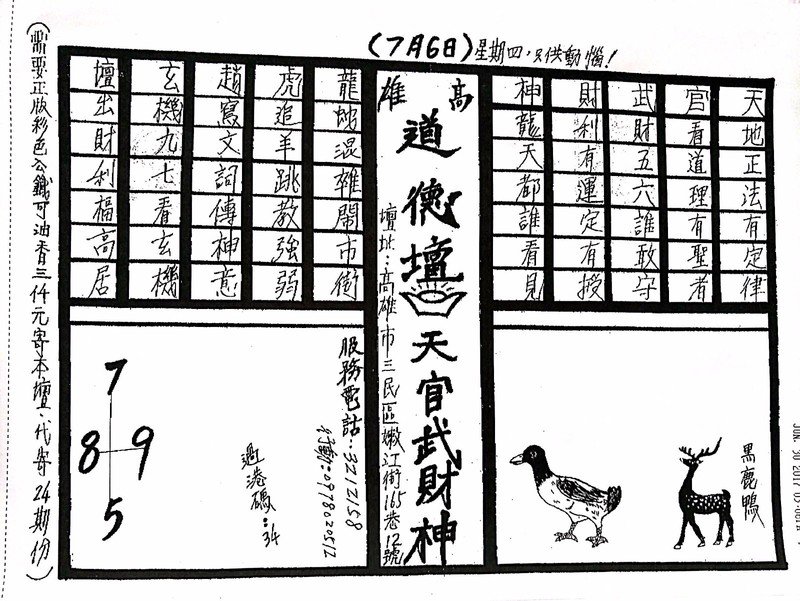 (7月6日)星期四,只供動惱!
天地正法有定律
官看道理有聖者
武財五六誰敢守
財利有運定有授
神龍天都誰看見
高雄
道德壇
天官武財神
壇址:高雄市三民區嫩江街165巷12號
龍蛇混雜鬧市街
虎追羊跳教強弱
趙寫文詞傳神意
玄機九七看玄機
壇出財利福高居
黑鹿鴨
服務電話:3212158
行動:0978020512
過港碼:34
7
8 9
5
(需要正版彩色公鐵可油香三仟元寄本壇.代寄24期份)